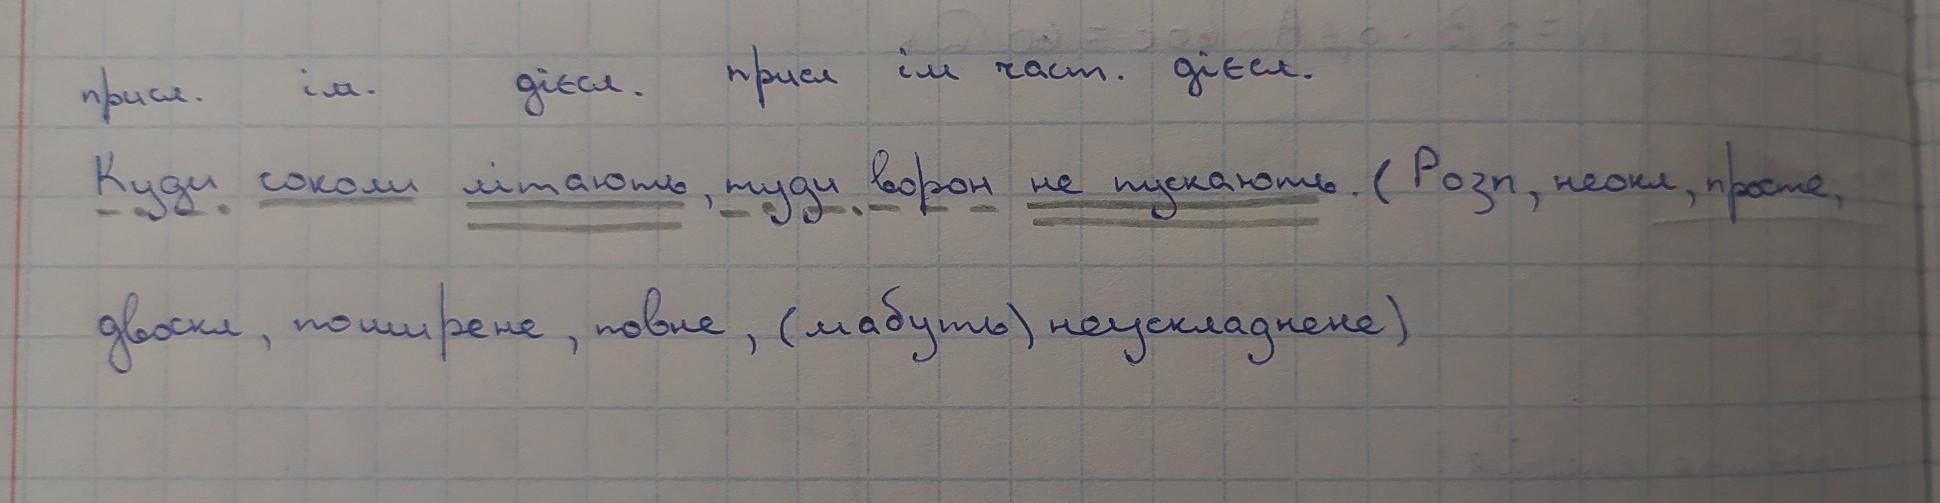 присл. ім. дієсл. присл ім част. дієсл.
Куди соколи літають, туди ворон не пускають. (Розп, неокл, просте,
двоскл, поширене, повне, (мабуть) неускладнене)